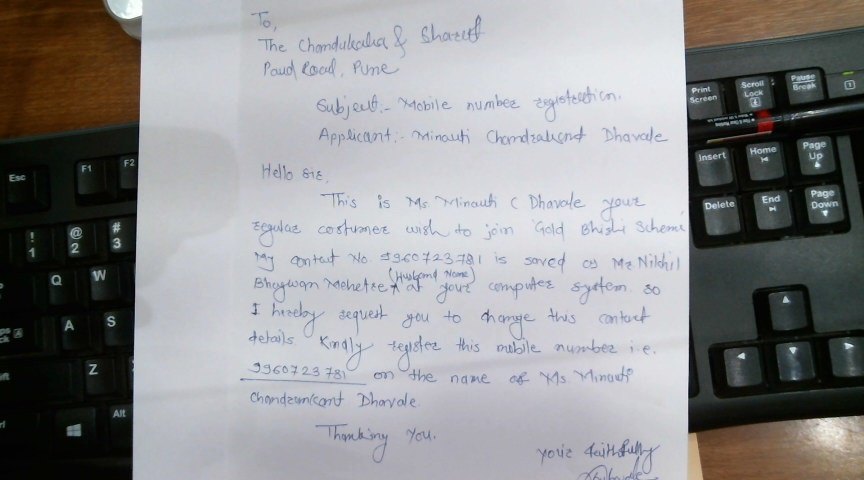 To,
The Chandukaka & Sharuf
Paud Road, Pune
Subject:- Mobile number registration.
Applicant:- Minauti Chandrakant Dhavale
Hello sir,
This is Ms. Minauti C Dhavale your
regular costumer wish to join Gold Bhishi Scheme
My contact No 9960723781 is saved as Mr Nikhil
(Husband Name)
Bhagwan Mohetre at your computer system. so
I hereby request you to change this contact
details Kindly register this mobile number i.e.
9960723781 on the name of Ms Minauti
Chandrankant Dhavale.
Thanking You.
Print Screen
Scroll Lock
Pause Break
1
Insert
Home
Page Up
Delete
End
Page Down
Esc
F1
F2
! 1
@ 2
# 3
Q
W
A
S
Z
Alt